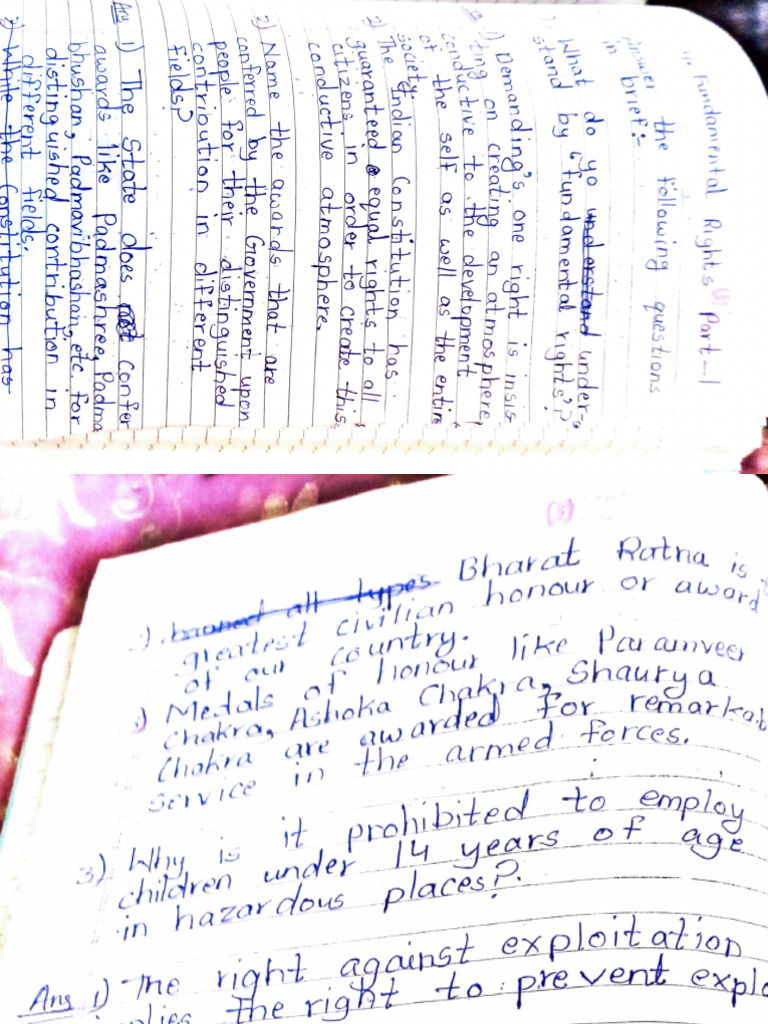 Fundamental Rights Part-1
Answer the following questions
in brief:-
What do you understand under-
stand by "fundamental rights"?
1) Demanding's one right is insis
ting on creating an atmosphere
conductive to the development
of the self as well as the entire
society.
2) The Indian Constitution has
guaranteed equal rights to all
citizens in order to create this
conductive atmosphere.
2) Name the awards that are
conferred by the Government upon
people for their distinguished
contribution in different
fields?
Ans 1) The State does not confer
awards like Padmashree, Padma
bhushan, Padmavibhashan, etc for
distinguished contribution in
different fields.
2) While the Constitution has
(3)
banned all types Bharat Ratna is
greatest civilian honour or award
of our country.
3) Medals of honour like Paramveer
Chakra, Ashoka Chakra, Shaurya
Chakra are awarded for remarkab
service in the armed forces.
3) Why is it prohibited to employ
children under 14 years of age
in hazardous places?
Ans 1) The right against exploitation
the right to prevent explo